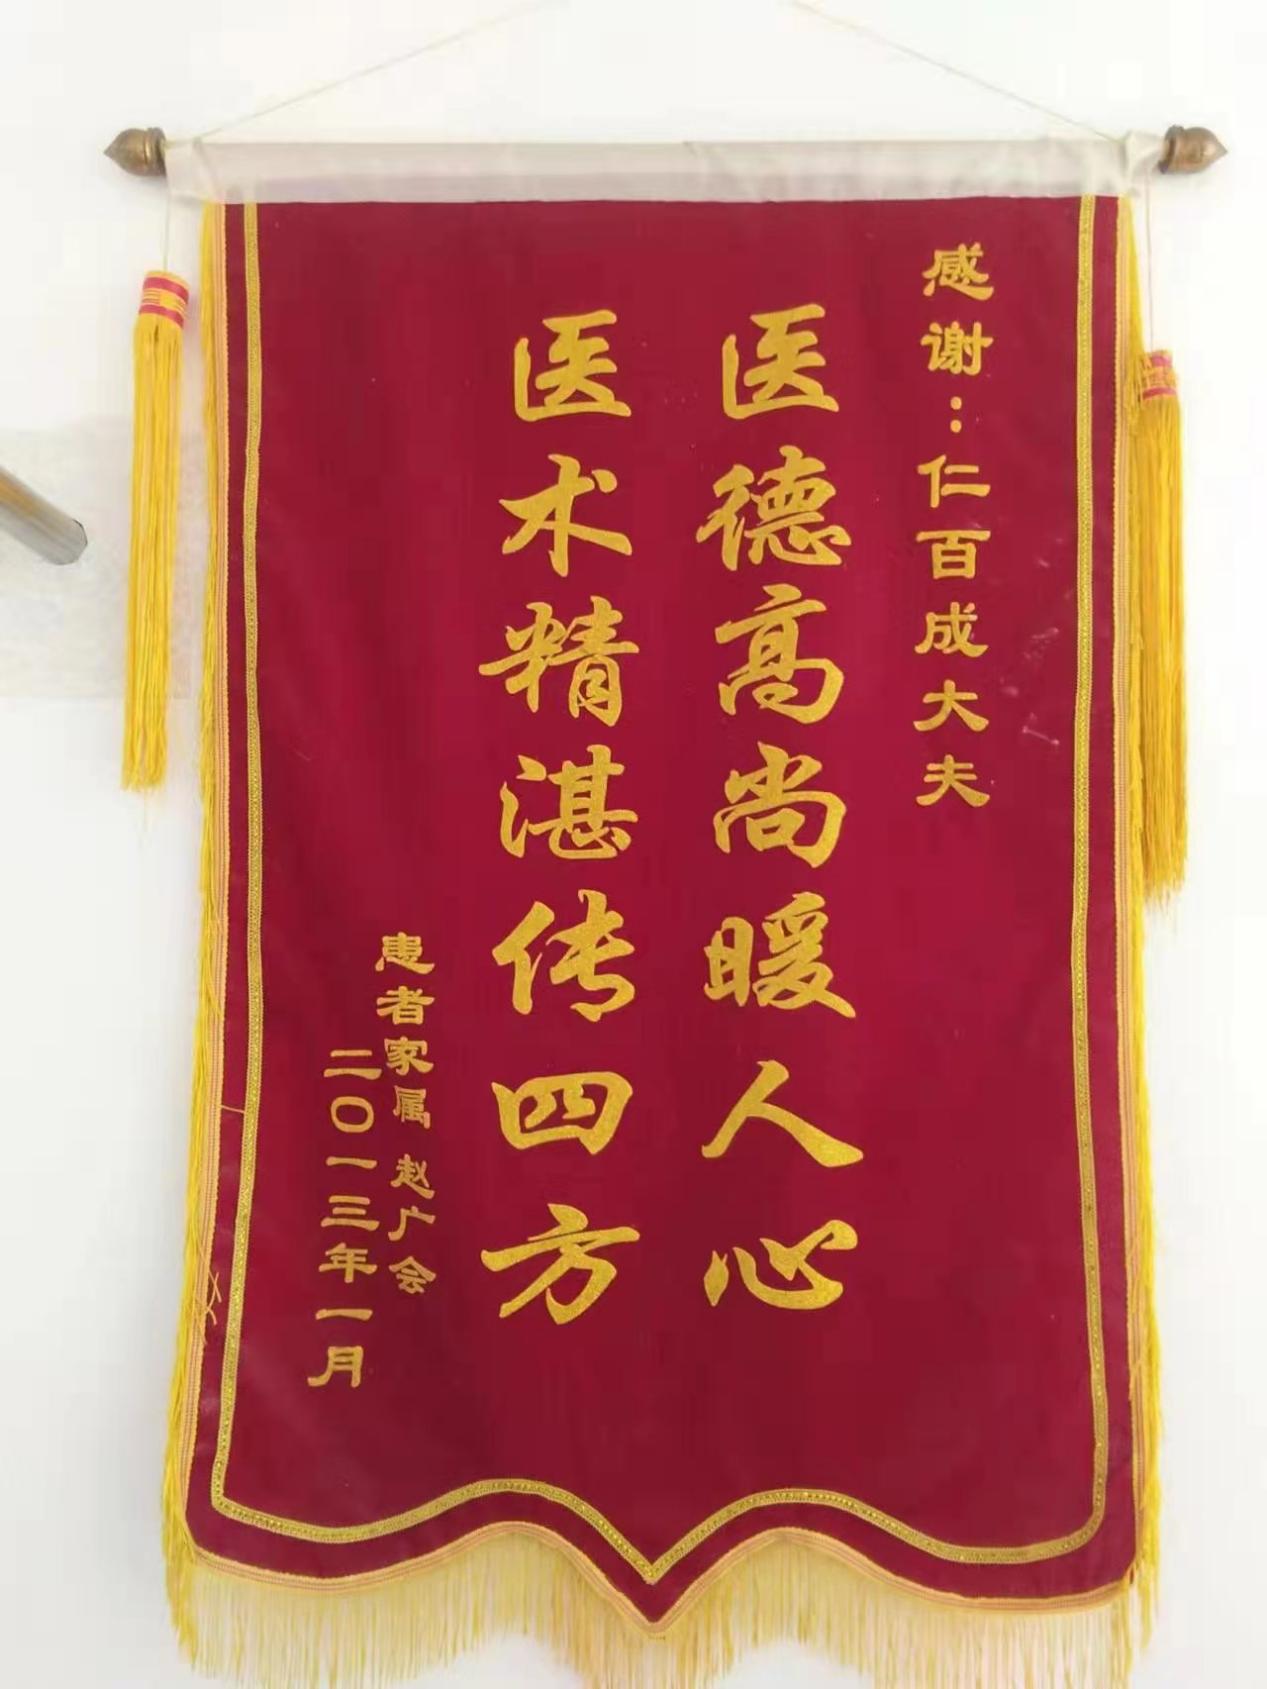 感谢：仁百成大夫
医德高尚暖人心
医术精湛传四方
患者家属 赵广会
二〇一三年一月